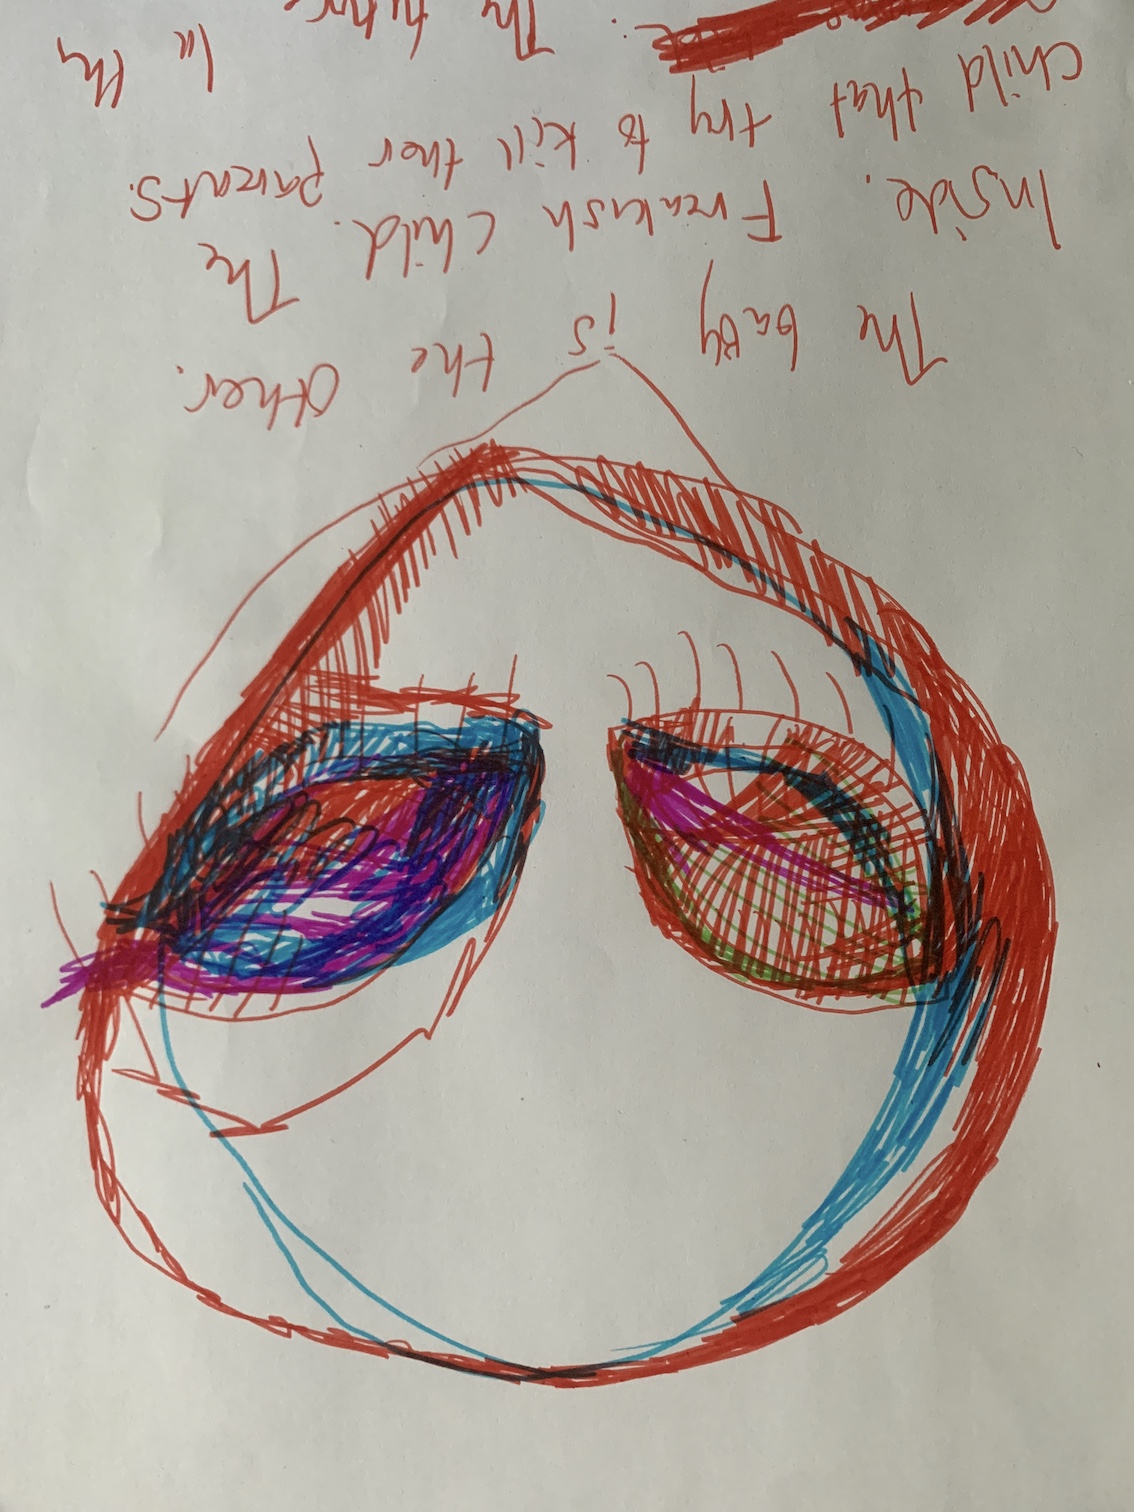 The baby is the Other.
Inside. Freakish child. The
child that try to kill ther parents.
The future In the